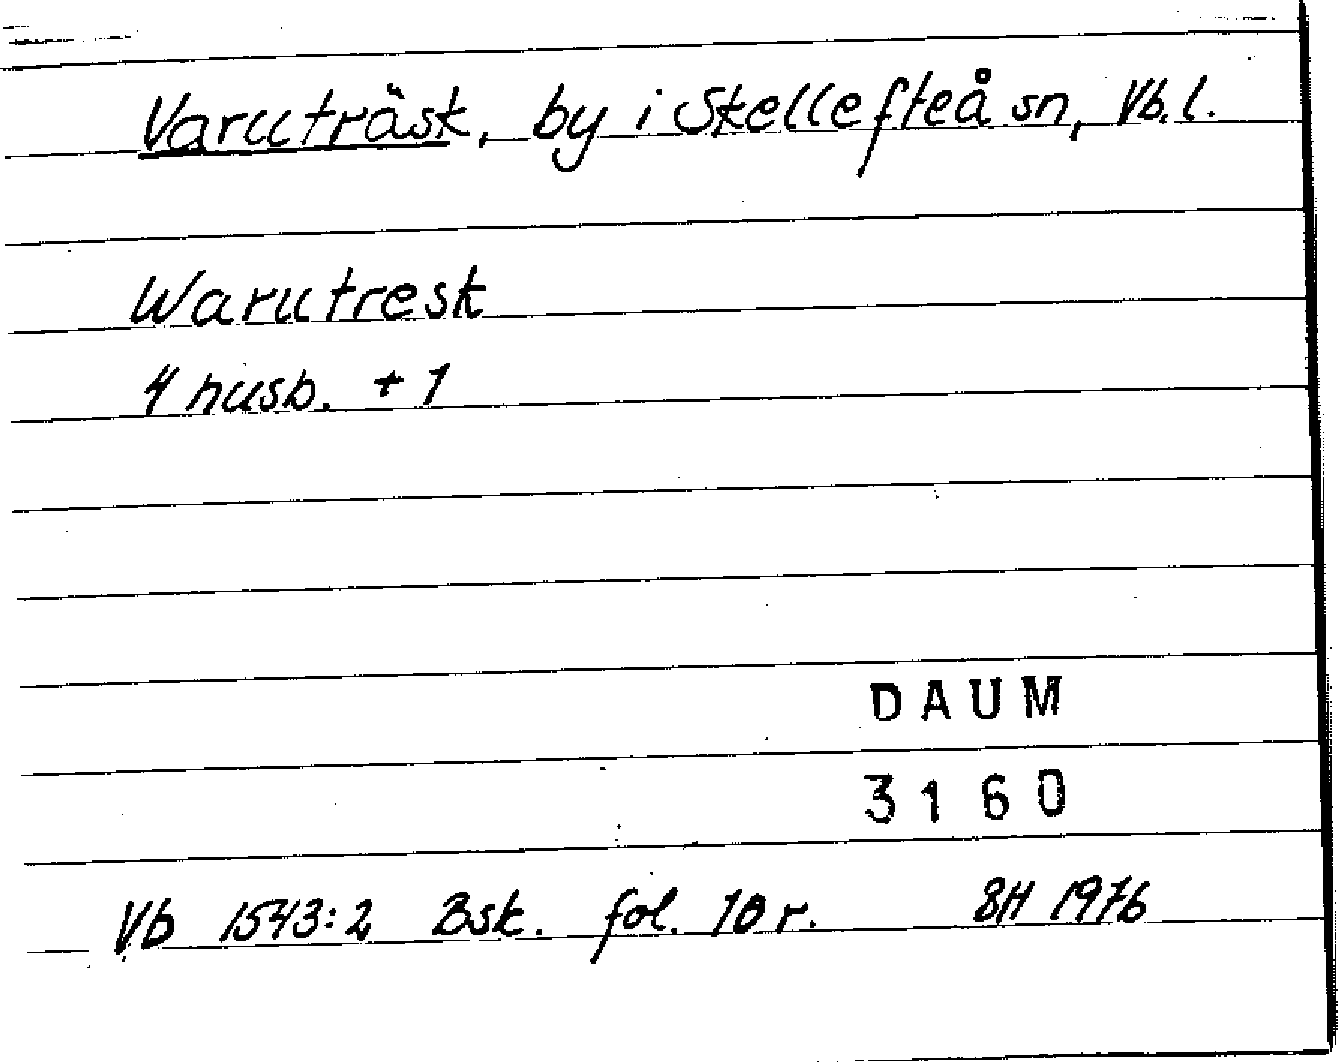 Varuträsk, by i Skellefteå sn, Vb.l.
Warutresk
4 husb. + 1
DAUM
3160
Vb 1543:2 Bsk. fol. 10 r. BH 1976